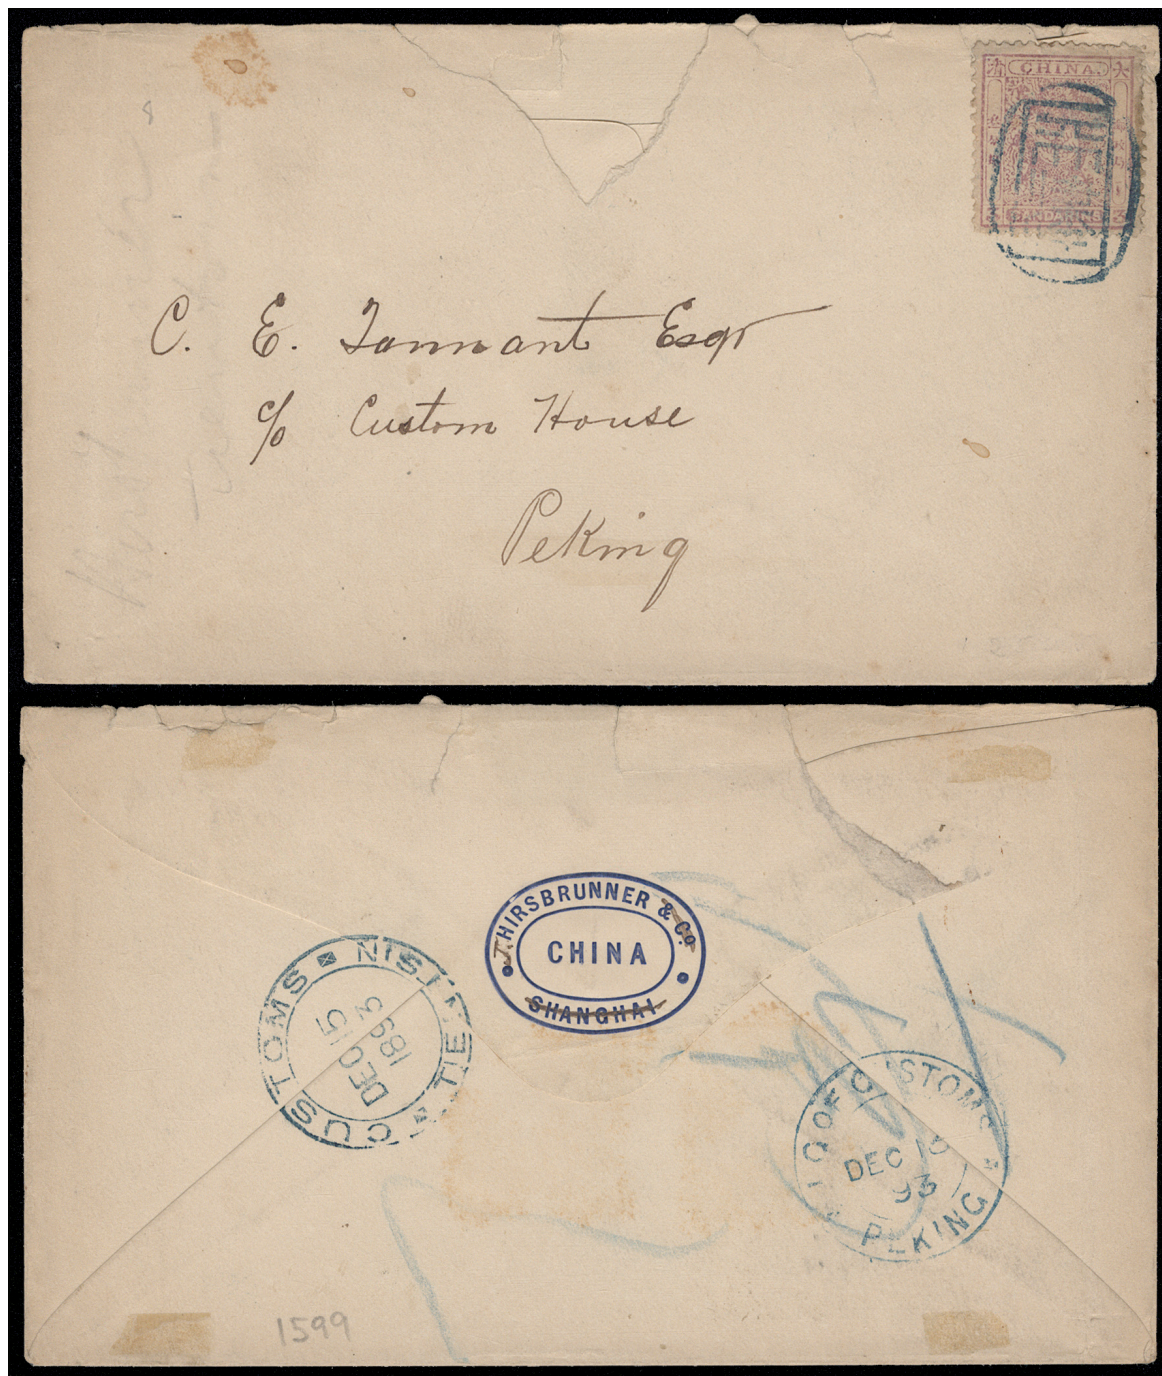 大
CHINA
3 CANDARINS 3
C. E. Tannant Esqr
c/o Custom House
Peking
J. HIRSBRUNNER & Co.
CHINA
SHANGHAI
CUSTOMS TIENTSIN
DEC 15
1893
I. G. OF CUSTOMS
DEC 15
93
PEKING
1599